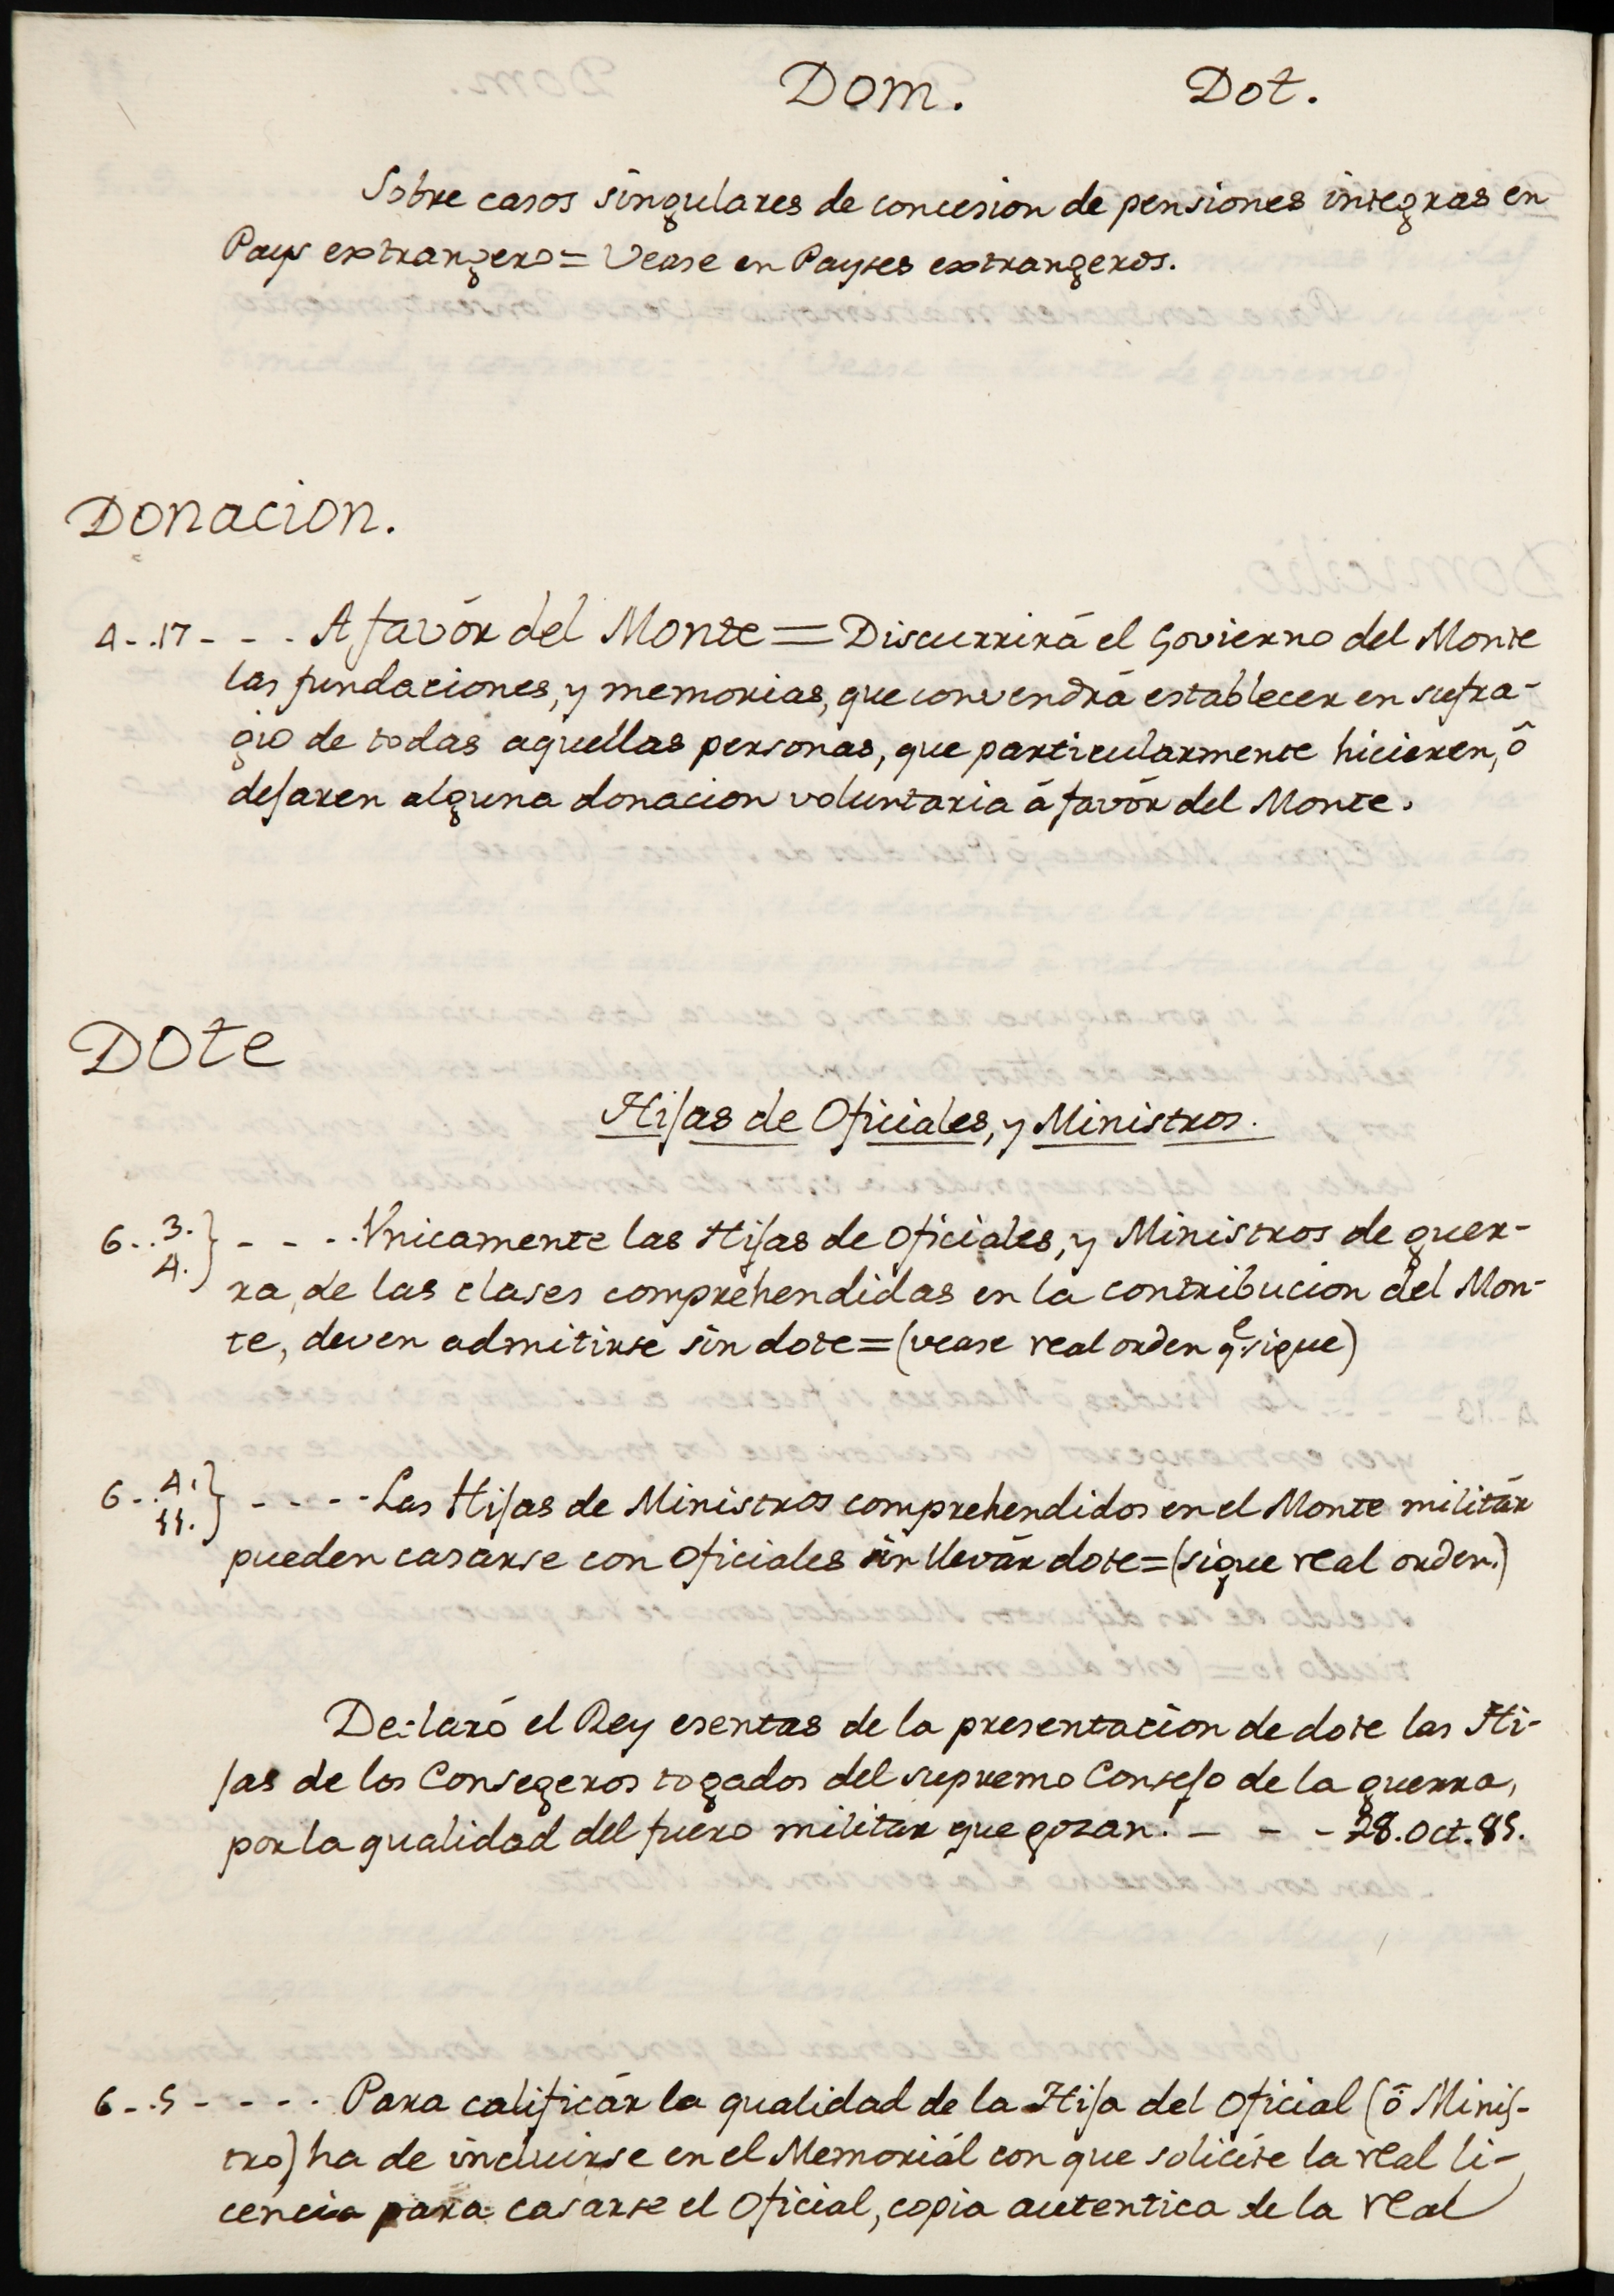 Dom. Dot.
Sobre casos singulares de concesion de pensiones integras en
Pays extrangero = Vease en Payses extrangeros.
Donacion.
4 - .17 - - - A favór del Monte = Discurrirá el Govierno del Monte
las fundaciones, y memorias, que convendrá establecer en sufra-
gio de todas aquellas personas, que particularmente hicieren, ó
dejaren alguna donacion voluntaria á favór del Monte.
Dote
Hijas de Oficiales, y Ministros.
6 - . 3. 4. } - - - . Vnicamente las Hijas de Oficiales, y Ministros de guer-
ra, de las clases comprehendidas en la contribucion del Mon-
te, deven admitirse sin dote = (vease real orden qe. sigue)
6 - . 4. 11. } - - - - Las Hijas de Ministros comprehendidos en el Monte militár
pueden casarse con Oficiales sin llevár dote = (sigue real orden.)
Declaró el Rey esentas de la presentacion de dote las Hi-
jas de los Consegeros togados del supremo Consejo de la guerra,
por la qualidad del fuero militar que gozan. - - - 28. Oct. 85.
6 - . 5 - - - - . Para calificár la qualidad de la Hija del Oficial (ó Minis-
tro) ha de incluirse en el Memoriál con que solicite la real li-
cencia para casarse el Oficial, copia autentica de la real